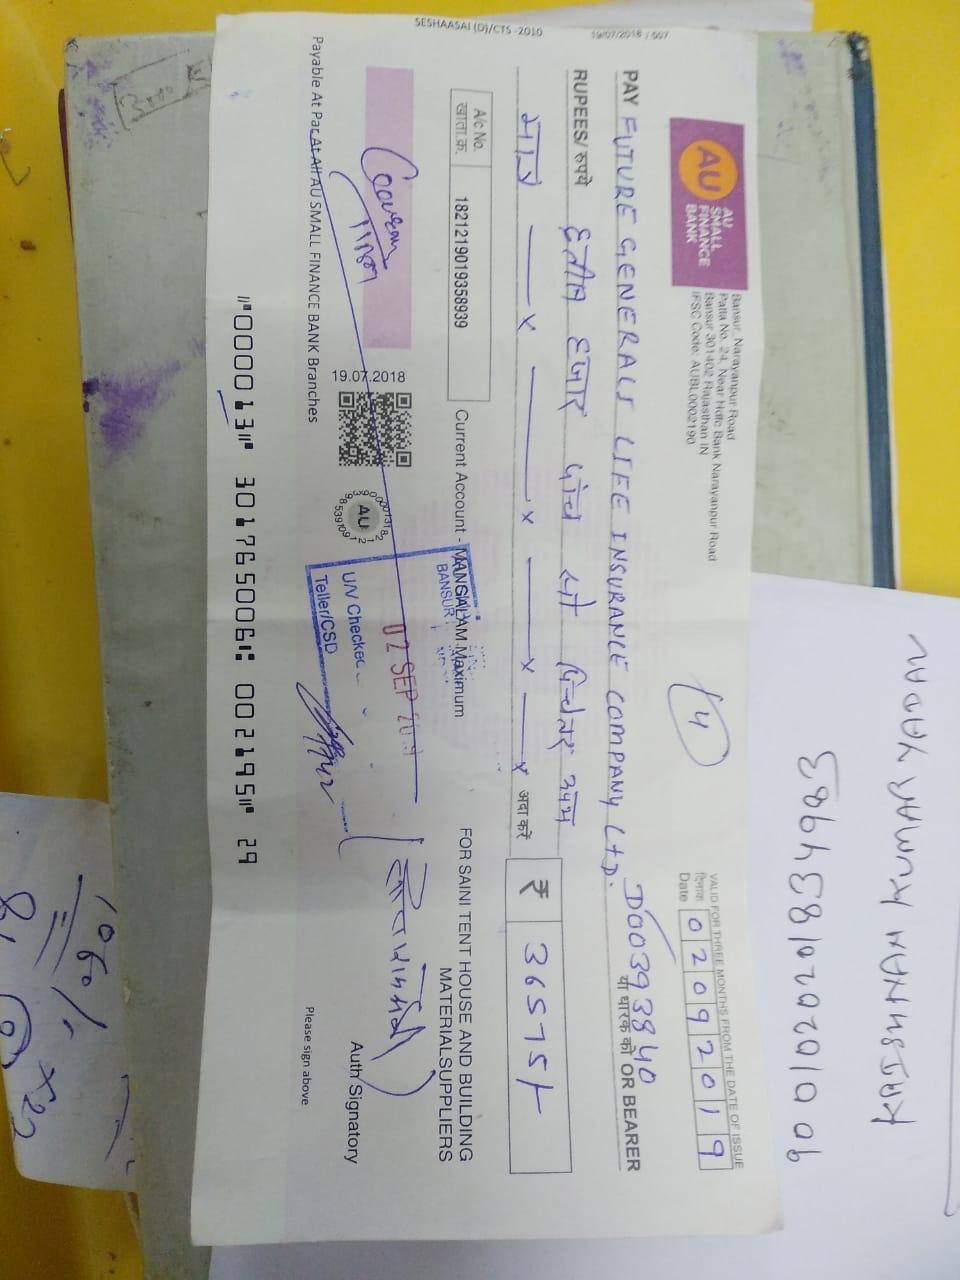 SESHAASAI (D)/CTS -2010
19/07/2018 / 607
AU
AU
SMALL
FINANCE
BANK
Bansur, Narayanpur Road
Patta No. 24, Near Hdfc Bank Narayanpur Road
Bansur 301402 Rajasthan IN
IFSC Code: AUBL0002190
4
VALID FOR THREE MONTHS FROM THE DATE OF ISSUE
दिनांक
Date
02092019
PAY FUTURE GENERALI LIFE INSURANCE COMPANY Ltd. D00393840
या धारक को OR BEARER
RUPEES/ रुपये छत्तीस हजार पांच सो पिचेत्तर रुपये
मात्र x x x x अदा करें
₹ 36575/-
A/c No.
खाता.क्र.
1821219019358939
Current Account - MANGALAM Maximum
BANSUR
FOR SAINI TENT HOUSE AND BUILDING
MATERIALSUPPLIERS
19.07.2018
AU
02 SEP 2019
U/V Checked
Teller/CSD
Auth Signatory
Please sign above
Payable At Par At All AU SMALL FINANCE BANK Branches
⑈000013⑈ 301765006⑆ 002195⑈ 29
KRISHNAN KUMAR YADAV
10601
x22